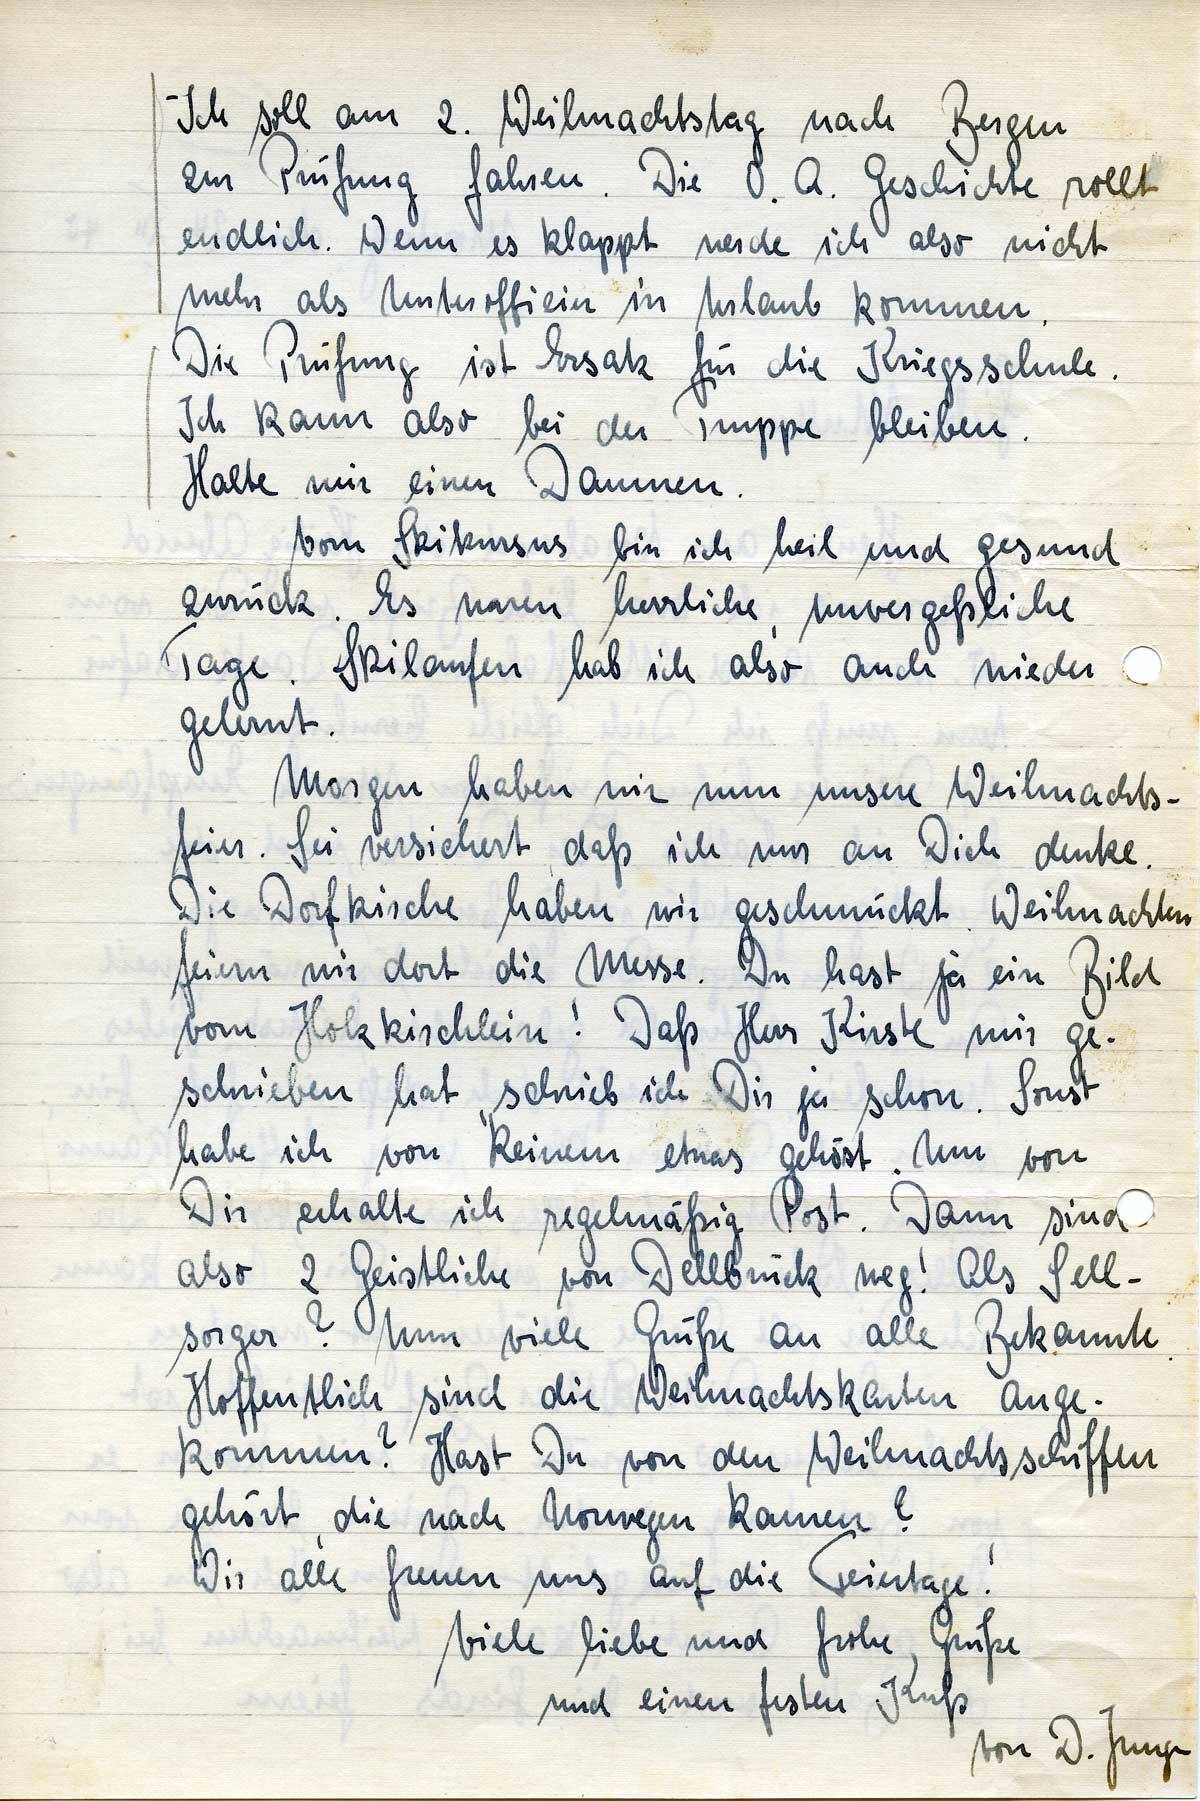 Ich soll am 2. Weihnachtstag nach Bergen
zur Prüfung fahren. Die O. A. Geschichte rollt
endlich. Wenn es klappt werde ich also nicht
mehr als Unteroffizier in Urlaub kommen.
Die Prüfung ist Ersatz für die Kriegsschule.
Ich kann also bei der Truppe bleiben.
Halte mir einen Daumen.
Vom Skikursus bin ich heil und gesund
zurück. Es waren herrliche, unvergeßliche
Tage. Skilaufen hab ich also auch wieder
gelernt.
Morgen haben wir nun unsere Weihnachts-
feier. Sei versichert, daß ich nur an Dich denke.
Die Dorfkirche haben wir geschmückt. Weihnachten
feiern wir dort die Messe. Du hast ja ein Bild
vom Holzkirchlein! Daß Herr Kirste mir ge-
schrieben hat, schrieb ich Dir ja schon. Sonst
habe ich von keinem etwas gehört. Nur von
Dir erhalte ich regelmäßig Post. Dann sind
also 2 Geistliche von Dellbrück weg! Als Seel-
sorger? Nun viele Grüße an alle Bekannte.
Hoffentlich sind die Weihnachtskarten ange-
kommen? Hast Du von den Weihnachtsschiffen
gehört, die nach Norwegen kamen?
Wir alle freuen uns auf die Feiertage!
Viele liebe und frohe Grüße
und einen festen Kuß
von D. Junge